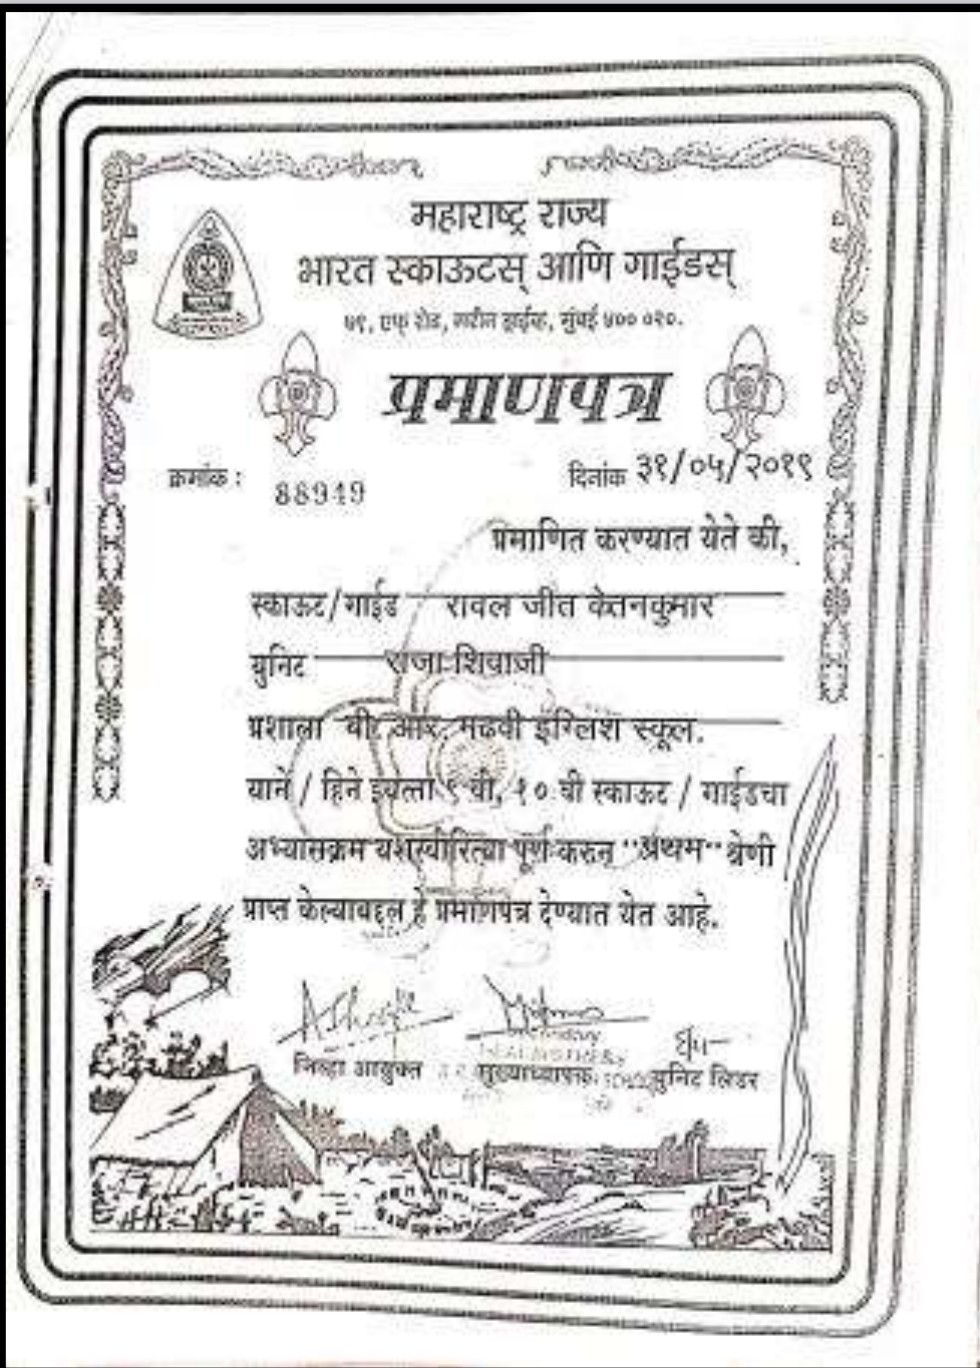 महाराष्ट्र राज्य
भारत स्काऊटस् आणि गाईडस्
५९, एफ् रोड, मरीन ड्राईव्ह, मुंबई ४०० ०२०.
प्रमाणपत्र
क्रमांक : 88949 दिनांक ३१/०५/२०१९
प्रमाणित करण्यात येते की,
स्काऊट/गाईड रावल जीत केतनकुमार
युनिट राजा शिवाजी
प्रशाला बी. आर. मढवी इंग्लिश स्कूल.
याने / हिने इयत्ता ९ वी, १० वी स्काऊट / गाईडचा
अभ्यासक्रम यशस्वीरित्या पूर्ण करुन "प्रथम" श्रेणी
प्राप्त केल्याबद्दल हे प्रमाणपत्र देण्यात येत आहे.
जिल्हा आयुक्त मुख्याध्यापक युनिट लिडर